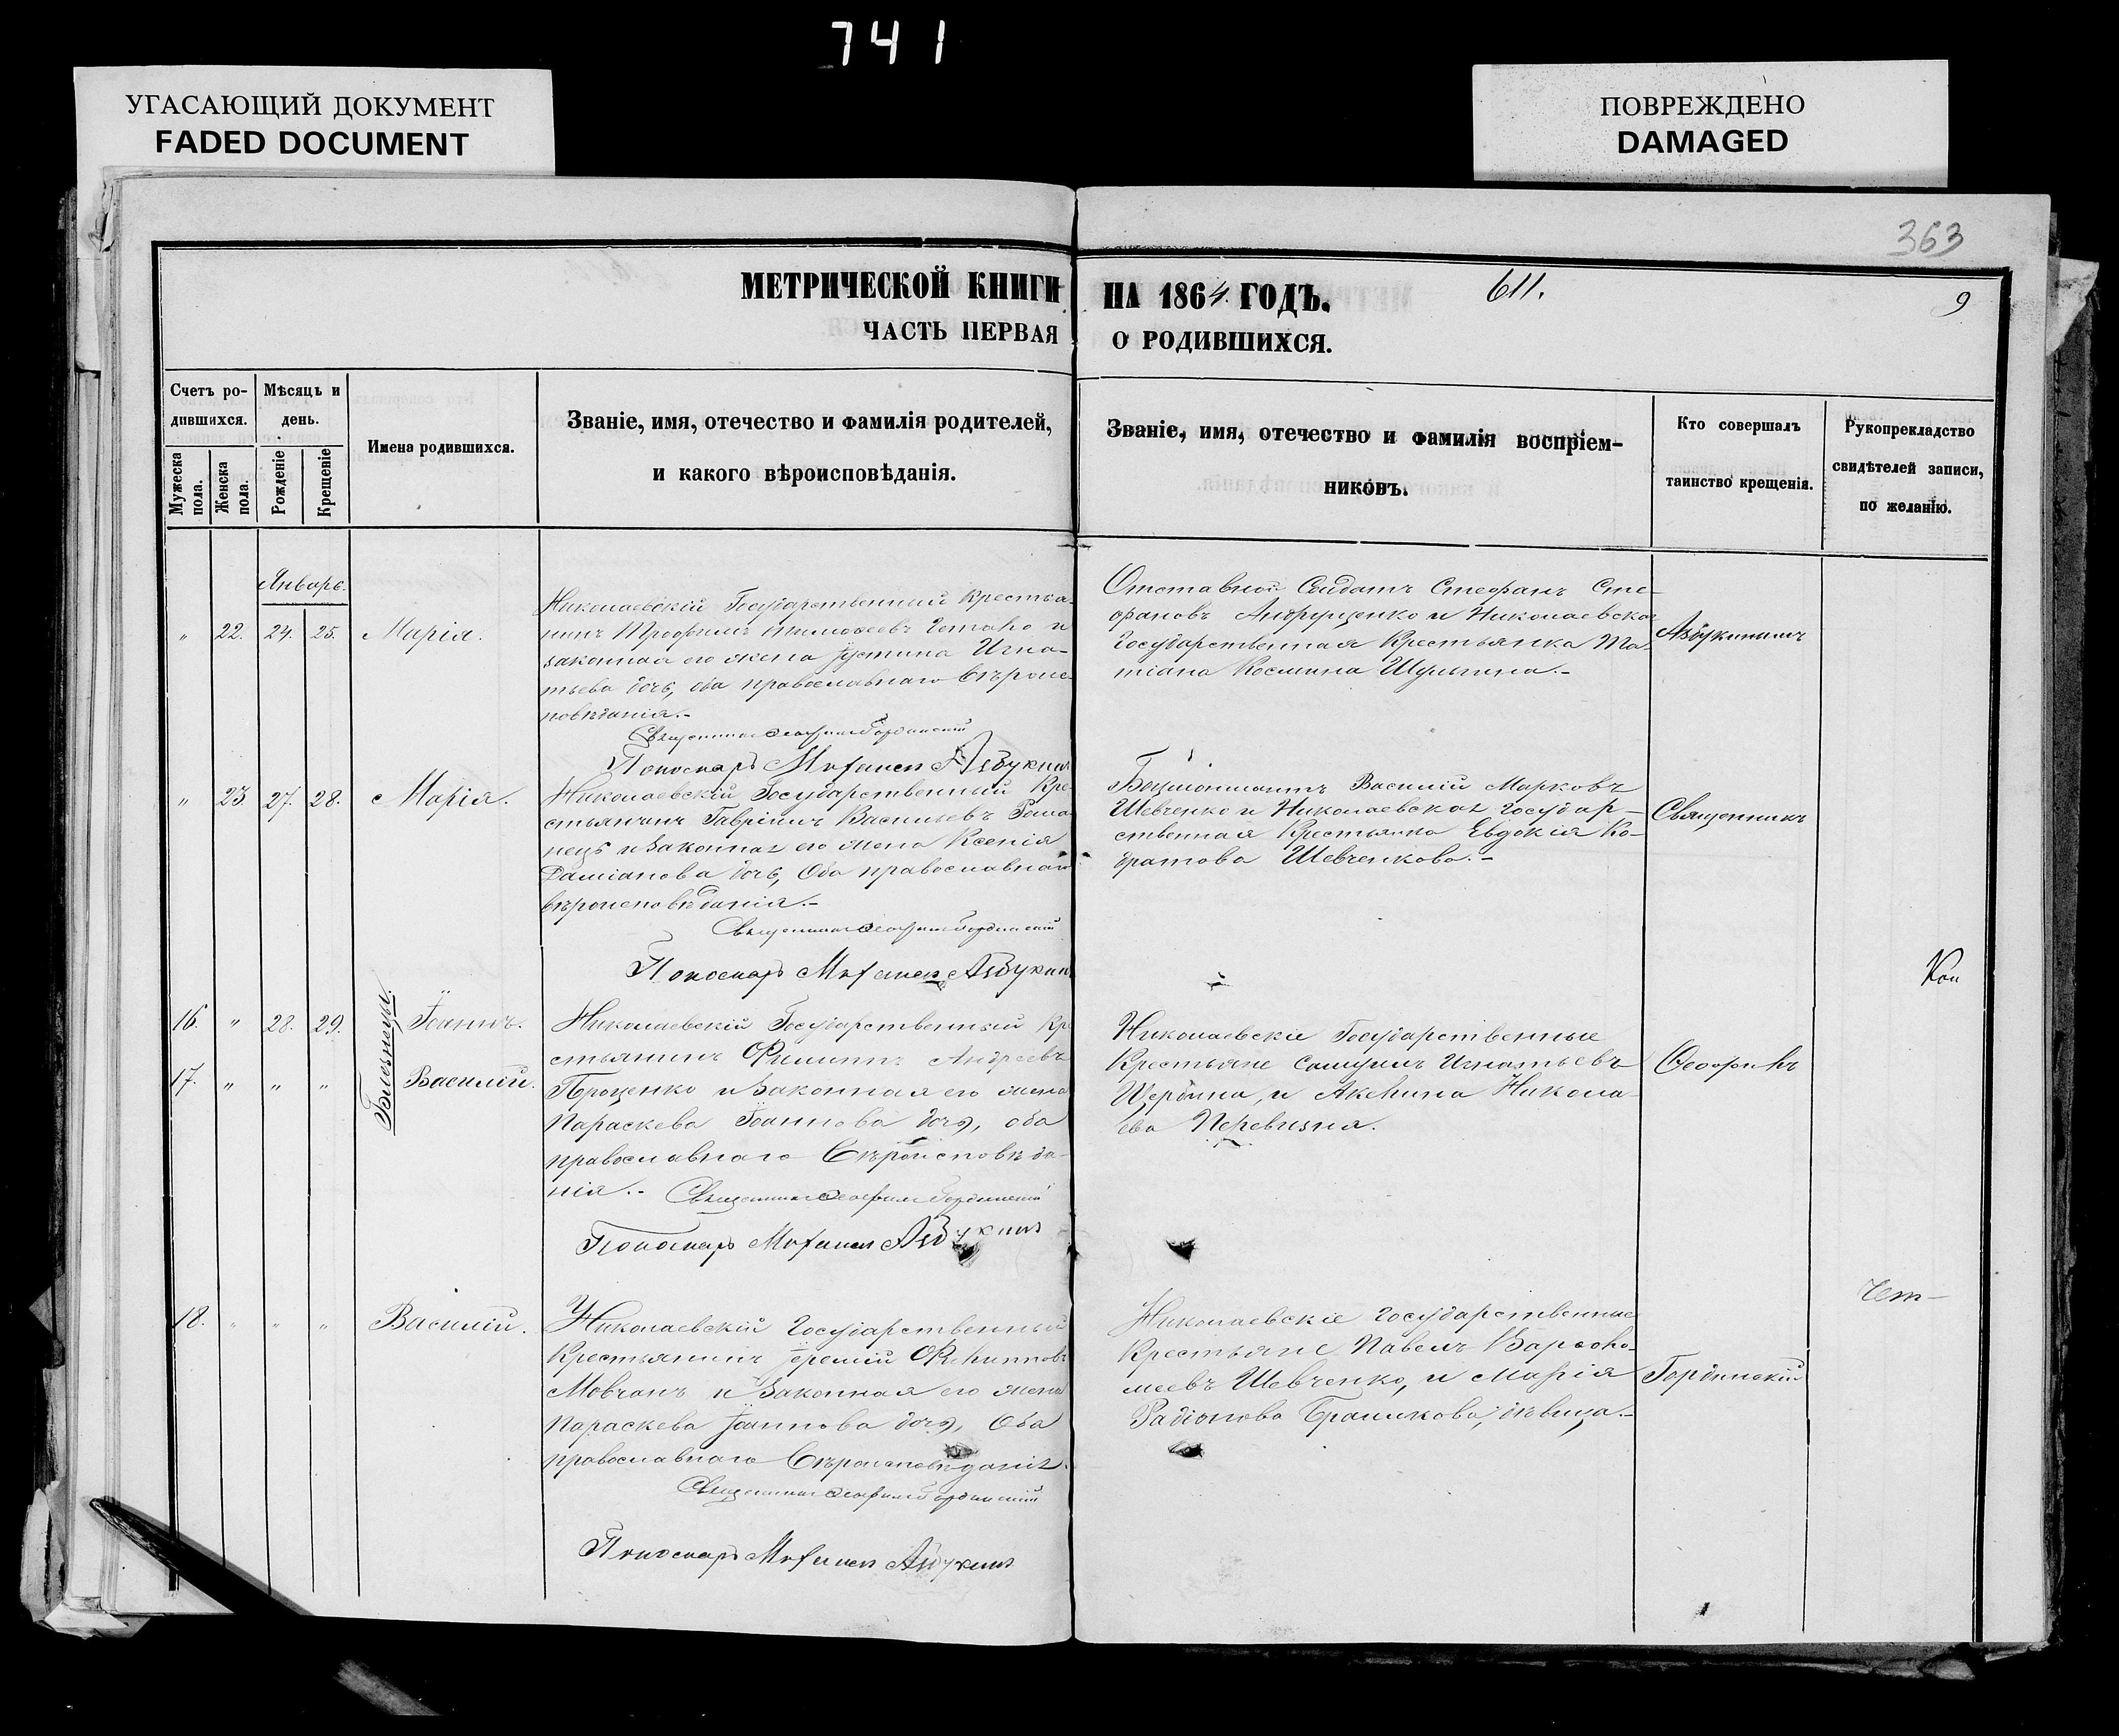 741
УГАСАЮЩИЙ ДОКУМЕНТ
FADED DOCUMENT
ПОВРЕЖДЕНО
DAMAGED
363
МЕТРИЧЕСКОЙ КНИГИ НА 1864 ГОДЪ.
611.
9
ЧАСТЬ ПЕРВАЯ О РОДИВШИХСЯ.
Счетъ ро-
дившихся.
Мужеска пола.
Женска пола.
Мѣсяцъ и
день.
Рожденіе
Крещеніе
Имена родившихся.
Званіе, имя, отечество и фамилія родителей,
и какого вѣроисповѣданія.
Званіе, имя, отечество и фамилія воспріем-
никовъ.
Кто совершалъ
таинство крещенія.
Рукоприкладство
свидѣтелей записи,
по желанію.
Январь.
" 22. 24. 25. Марія.
Николаевскій Государственный Крестья-
нинъ Трофимъ Тимофеевъ и
законная его жена Іустина Игна-
тьева дочь, оба православнаго вѣроис-
повѣданія.-
Священникъ Ѳеофилъ Гординскій
Пономарь Азбукинъ
Отставной Солдатъ Стефанъ Сте-
фановъ Андрущенко и Николаевская
Государственная Крестьянка Та-
тіана Космина Шульгина.-
" 23. 27. 28. Марія.
Николаевскій Государственный Кре-
стьянинъ Гавріилъ Васильевъ Рома-
нецъ и законная его жена Ксенія
Даміанова дочь, Оба православнаго
вѣроисповѣданія.-
Священникъ Ѳеофилъ Гординскій
Пономарь Азбукинъ
Василій Марковъ
Шевченко и Николаевская Государ-
ственная Крестьянка Евдокія Ко-
дратова Шевченкова.-
Священникъ
Близнецы.
16. " 28. 29. Іоаннъ.
17. " " " Василій.
Николаевскій Государственный Кре
стьянинъ Филиппъ Андреевъ
Проценко и Законная его жена
Параскева Іоаннова дочь, оба
православнаго Вѣроисповѣда-
нія.- Священникъ Ѳеофилъ Гординскій
Пономарь Азбукинъ
Николаевскіе Государственные
Крестьяне Самуилъ Игнатьевъ
Щербина, и Акилина Никола-
ева
Ѳеофилъ
18. " " " Василій.
Николаевскій Государственный
Крестьянинъ Іеремій Филипповъ
Мовчанъ и Законная его жена
Параскева Іоаннова дочь, Оба
православнаго Вѣроисповѣданія.
Священникъ Ѳеофилъ Гординскій
Пономарь Азбукинъ
Николаевскіе Государственные
Крестьяне Павелъ Варфоло-
меевъ Шевченко, и Марія
Радіонова дѣвица.-
Гординскій